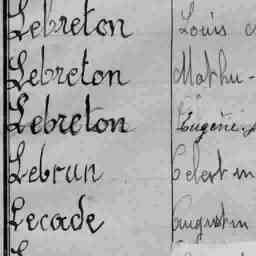 Lebreton Louis
Lebreton Mathu
Lebreton Eugène
Lebrun Celestin
Lecade Augustin